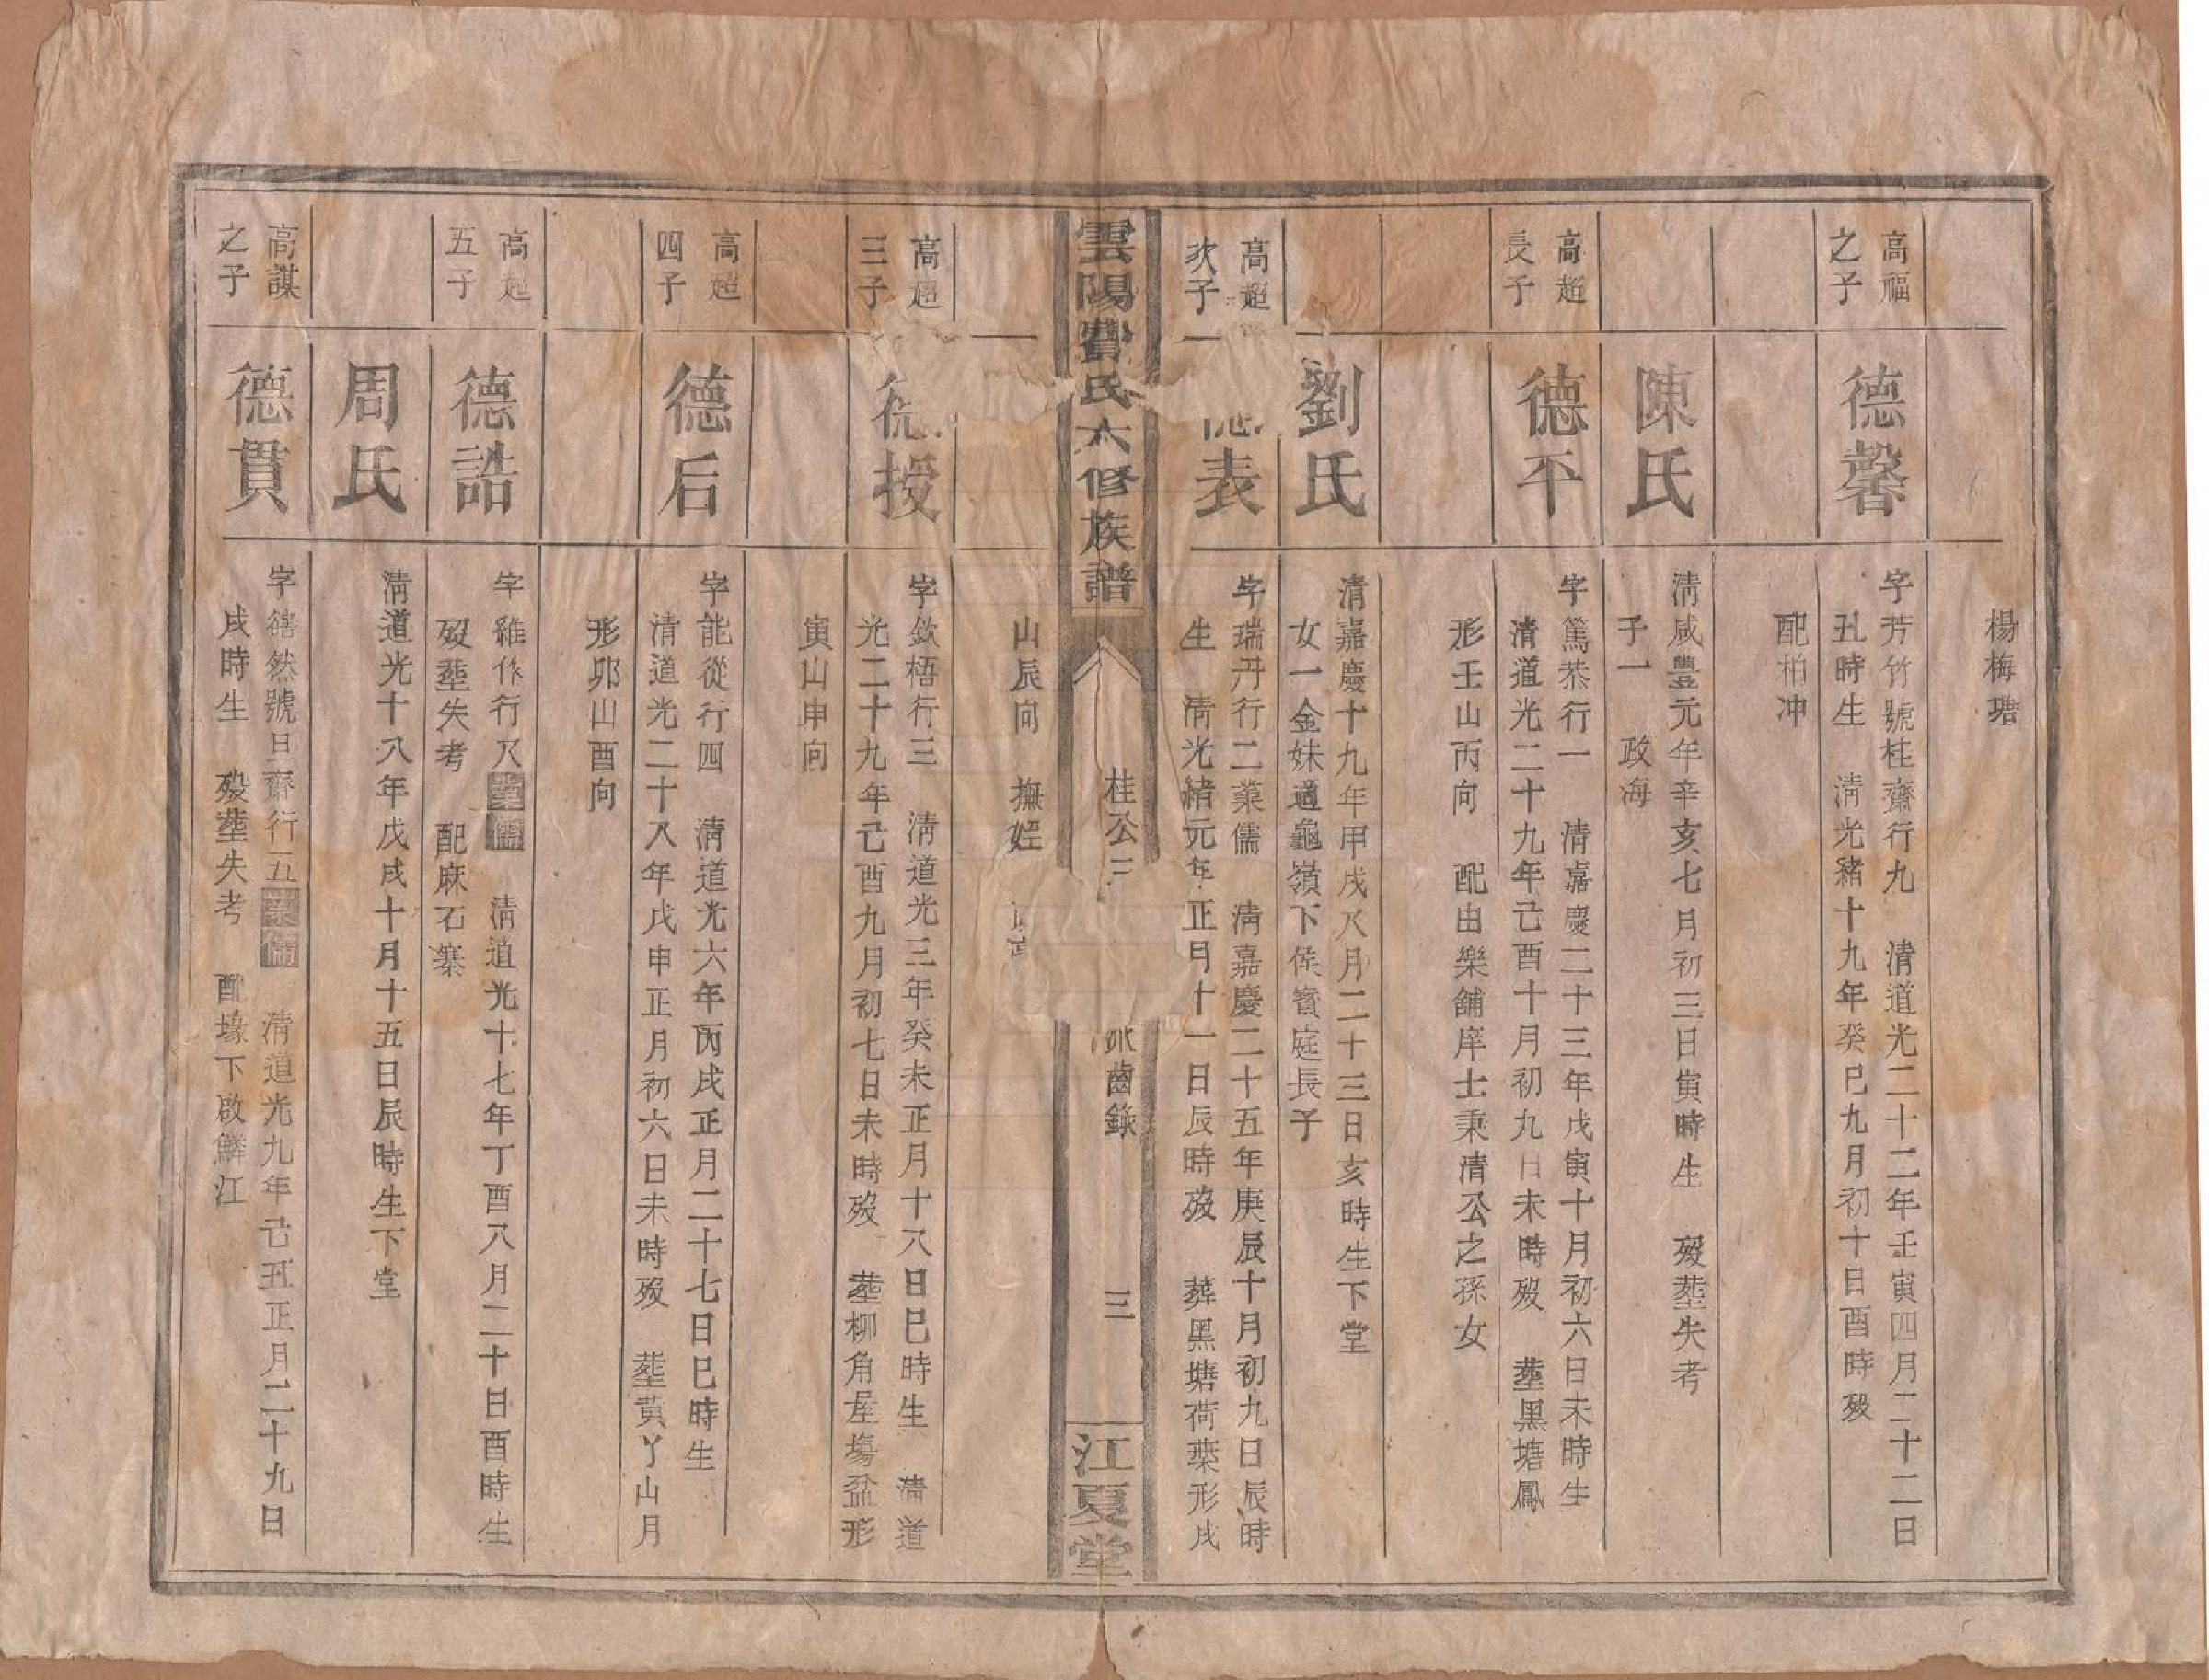 楊梅㙓
高福
之子
德馨
字芳竹號桂齋行九 清道光二十二年壬寅四月二十二日
丑時生 清光緒十九年癸巳九月初十日酉時歿
配柏冲
陳氏
清咸豊元年辛亥七月初三日寅時生 歿塟失考
子一 政海
高超
長子
德不
字篤恭行一 清嘉慶二十三年戊寅十月初六日未時生
清道光二十九年己酉十月初九日未時歿 塟黑塘鳳
形壬山丙向 配由樂舖岸士秉清公之孫女
劉氏
清嘉慶十九年甲戌八月二十三日亥時生下堂
女一金妹適龜嶺下侯賓庭長子
高超
次子
德表
字瑞丹行二業儒 清嘉慶二十五年庚辰十月初九日辰時
生 清光緒元年正月十一日辰時歿 葬黑塘荷葉形戌
雲陽費氏六修族譜
桂公三
派齒錄
三
江夏堂
山辰向 撫姪
高超
三子
德授
字欽梧行三 清道光三年癸未正月十八日巳時生 清道
光二十九年己酉九月初七日未時歿 塟柳角屋塲盆形
寅山申向
高超
四子
德后
字能從行四 清道光六年丙戌正月二十七日巳時生
清道光二十八年戊申正月初六日未時歿 塟黃丫山月
形卯山酉向
高超
五子
德誥
字維作行八業儒 清道光十七年丁酉八月二十日酉時生
歿塟失考 配麻石寨
周氏
清道光十八年戊戌十月十五日辰時生下堂
高謀
之子
德貫
字禧然號旦齋行五業儒 清道光九年己丑正月二十九日
戌時生 歿塟失考 配壕下啟鱗江